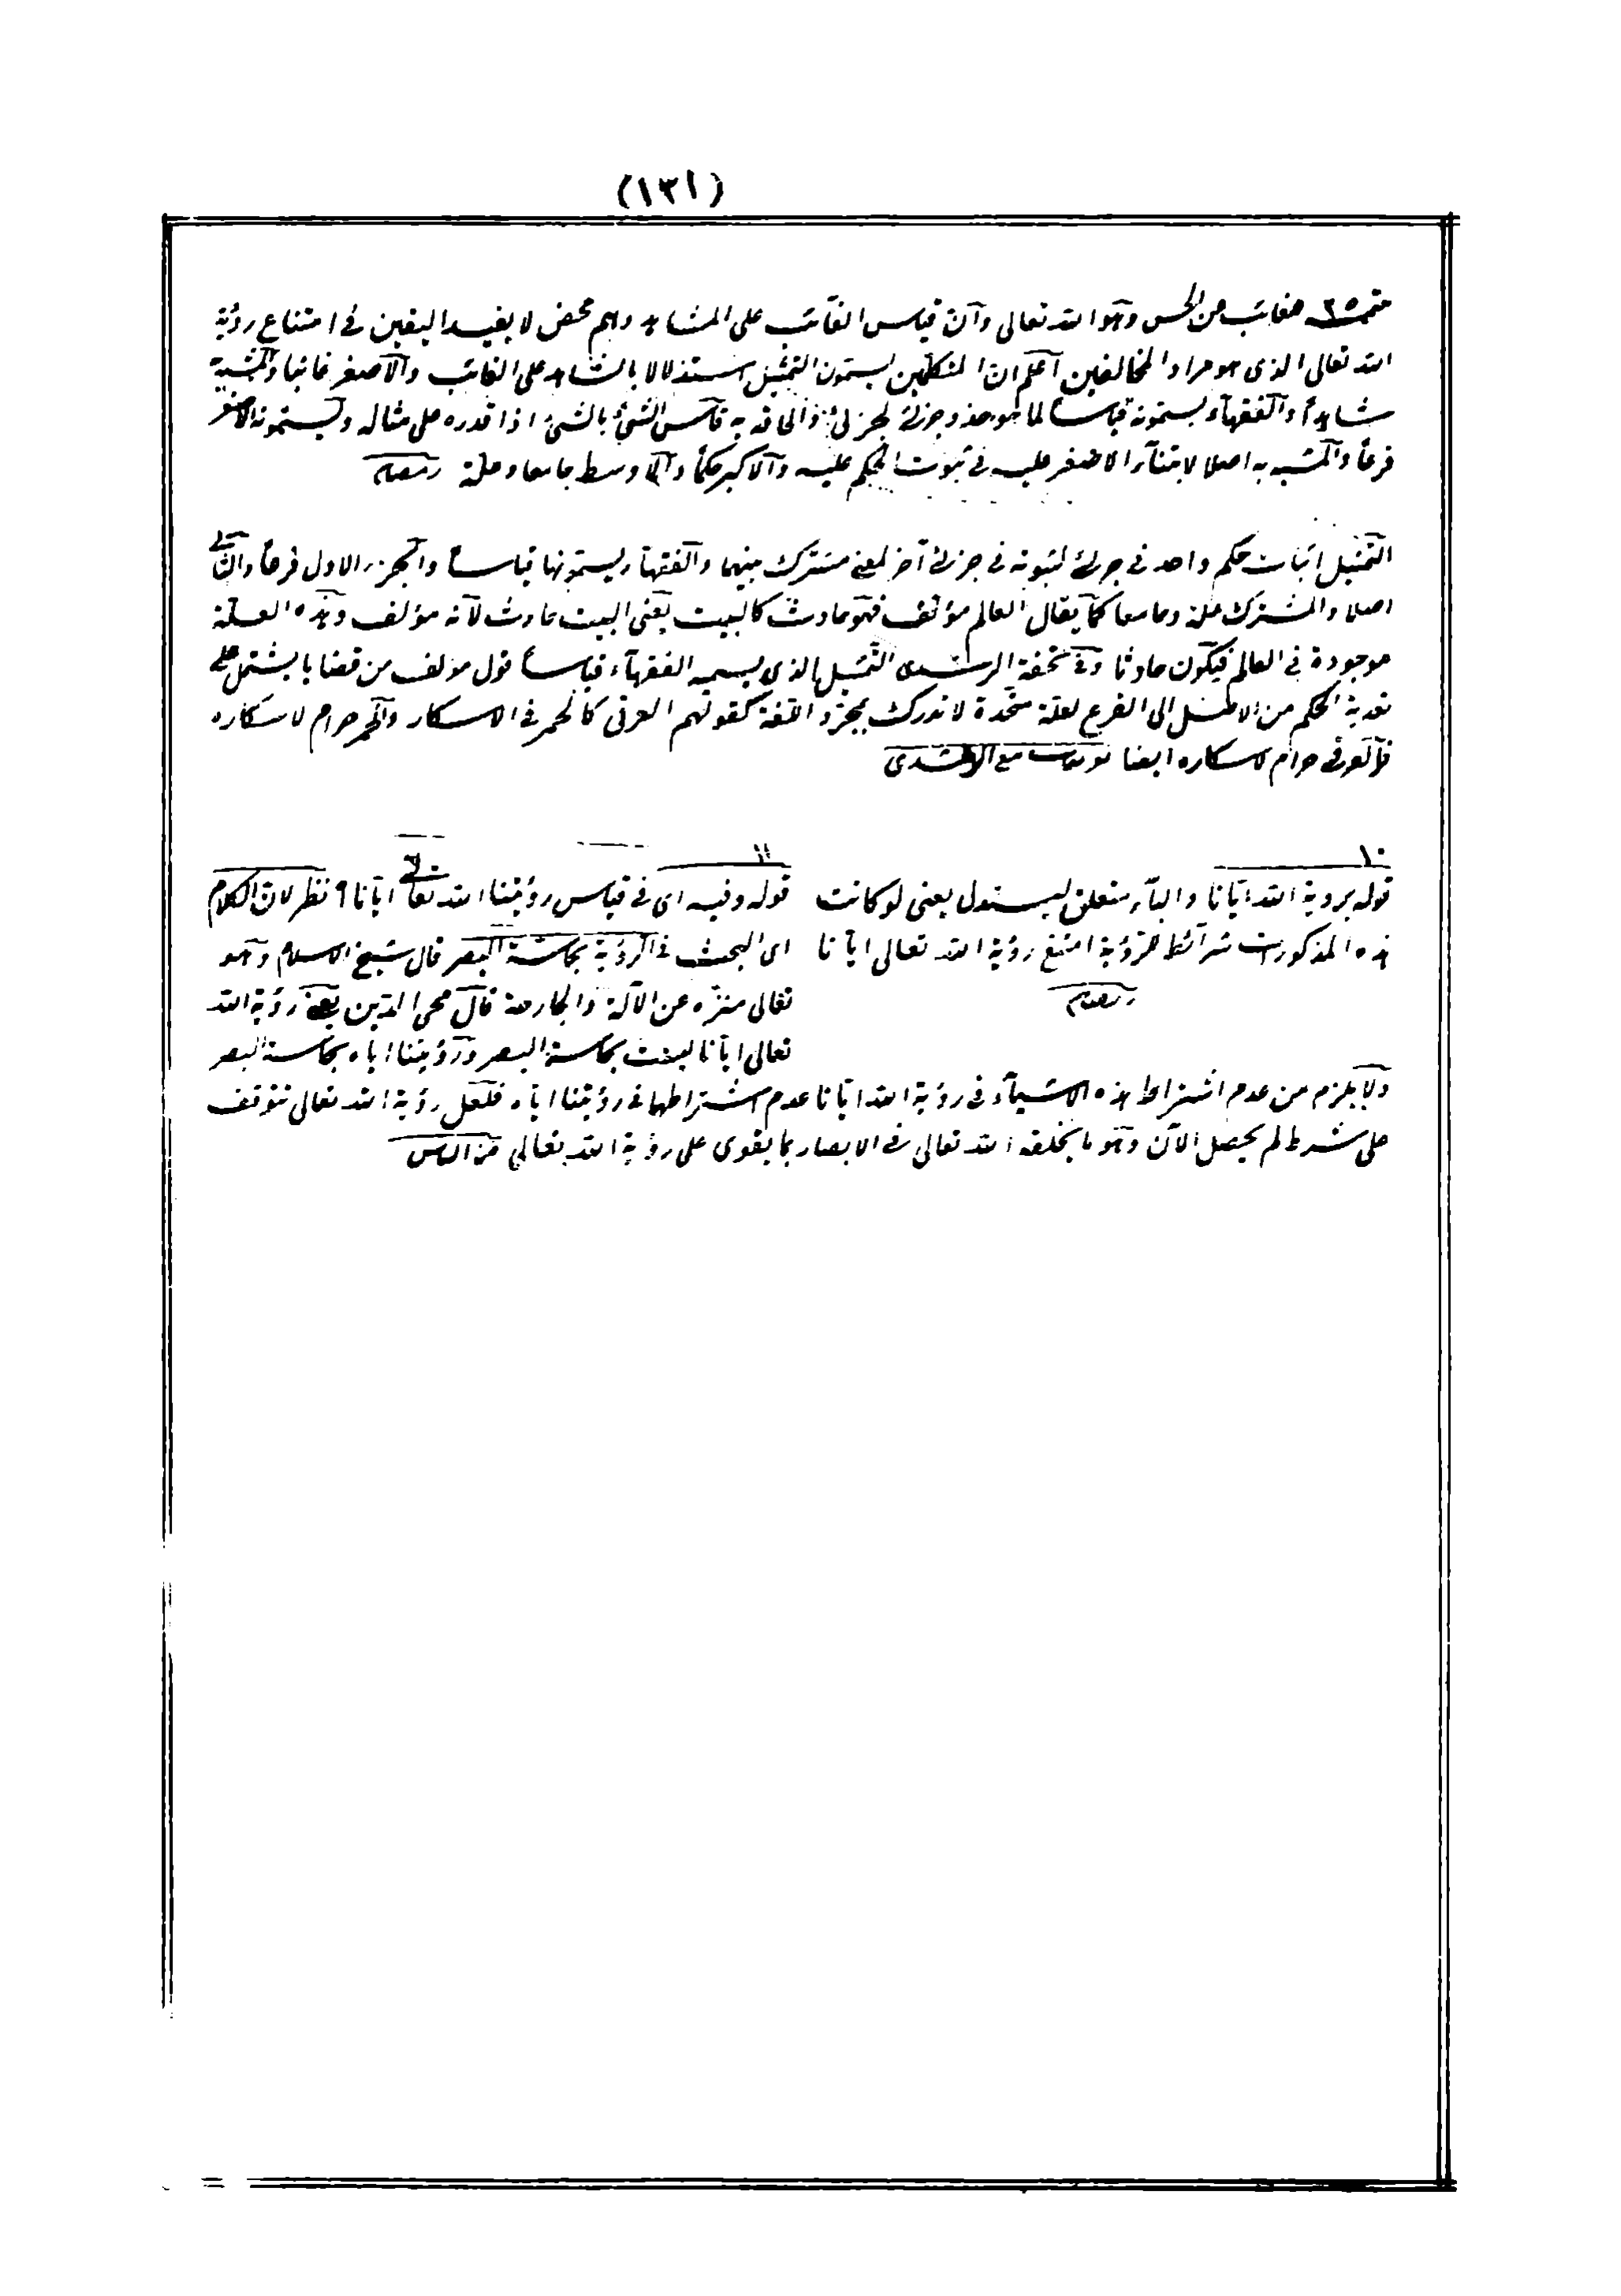 (١٣١)
فغائب عن الحس وهو الله تعالى وان قياس الغائب على المشاهد وهم محض لا يفيد اليقين في امتناع رؤية
الله تعالى الذى هو مراد المخالفين اعلم ان المتكلمين يسمون التمثيل استدلالا بالشاهد على الغائب والاصغر غائبا والمشبه به
شاهدا والفقهاء يسمونه قياسا لما هو حذو جزئى لجزئى والحاقه به قاس الشئ بالشئ اذا قدره على مثاله ويسمونه الاصغر
فرعا والمشبه به اصلا لابتناء الاصغر عليه في ثبوت الحكم عليه والاكبر حكما والاوسط جامعا وعلة رمضان
التمثيل اثبات حكم واحد في جزئى لثبوته في جزئى آخر لمعنى مشترك بينهما والفقهاء يسمونها قياسا والجزء الاول فرعا والثانى
اصلا والمشترك علة وجامعا كما يقال العالم مؤلف فهو حادث كالبيت يعنى البيت حادث لانه مؤلف وهذه العلة
موجودة في العالم فيكون حادثا وفى تحفة الرشدى التمثيل الذى يسميه الفقهاء قياسا قول مؤلف من قضايا يشتمل على
تعدية الحكم من الاصل الى الفرع لعلة متحدة لا تدرك بمجرد اللغة كقولهم العرقى كالخمر في الاسكار والخمر حرام لاسكاره
فالعرقى حرام لاسكاره ايضا مع الرشدى
١٠
قوله برؤية الله ايانا والباء متعلق ليستدل يعنى لو كانت
هذه المذكورات شرائط للرؤية امتنع رؤية الله تعالى ايانا
رمضان
١١
قوله وفيه اى في قياس رؤيتنا الله تعالى ايانا ٩ نظر لان الكلام
اى البحث في الرؤية بحاسة البصر قال شيخ الاسلام وهو
تعالى منزه عن الآلة والجارحة قال محى الدين يعنى رؤية الله
تعالى ايانا ليست بحاسة البصر ورؤيتنا اياه بحاسة البصر
ولا يلزم من عدم اشتراط هذه الاشياء في رؤية الله ايانا عدم اشتراطها في رؤيتنا اياه فلعل رؤية الله تعالى تتوقف
على شرط لم يحصل الآن وهو ما يخلقه الله تعالى في الابصار بما يقوى على رؤية الله تعالى